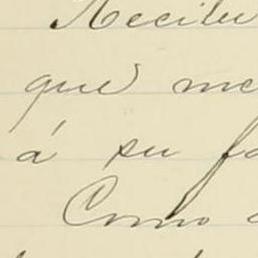 Recibi
que me
á su fa
Como